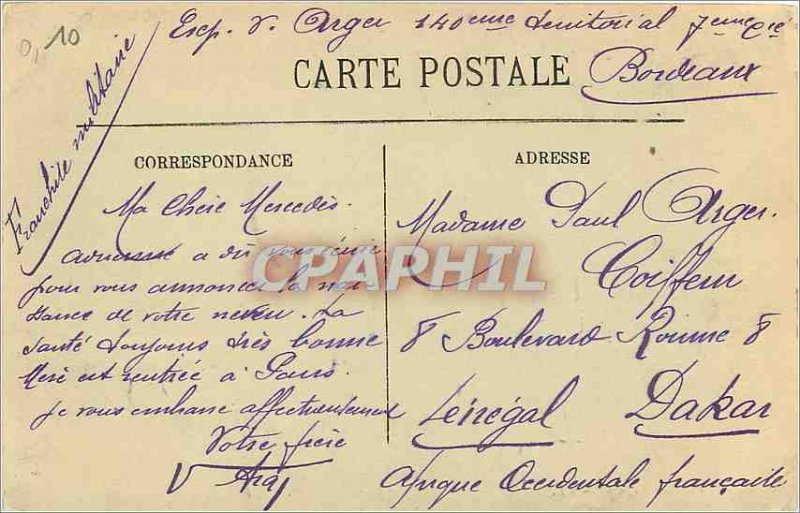 0,10
Exp. V. Arger 140eme territorial 7eme Cie
Bordeaux
Franchise militaire
CARTE POSTALE
CORRESPONDANCE
Ma Chère Mercedès.
a dû vous écrire
pour vous annoncer la nais
sance de votre neveu. La
santé toujours très bonne
Mère est rentrée à Paris.
je vous embrasse affectueusement
Votre frère
V
ADRESSE
Madame Paul Arger.
Coiffeur
8 Boulevard Roume 8
Dakar
Sénégal
Afrique Occidentale française
CPAPHIL